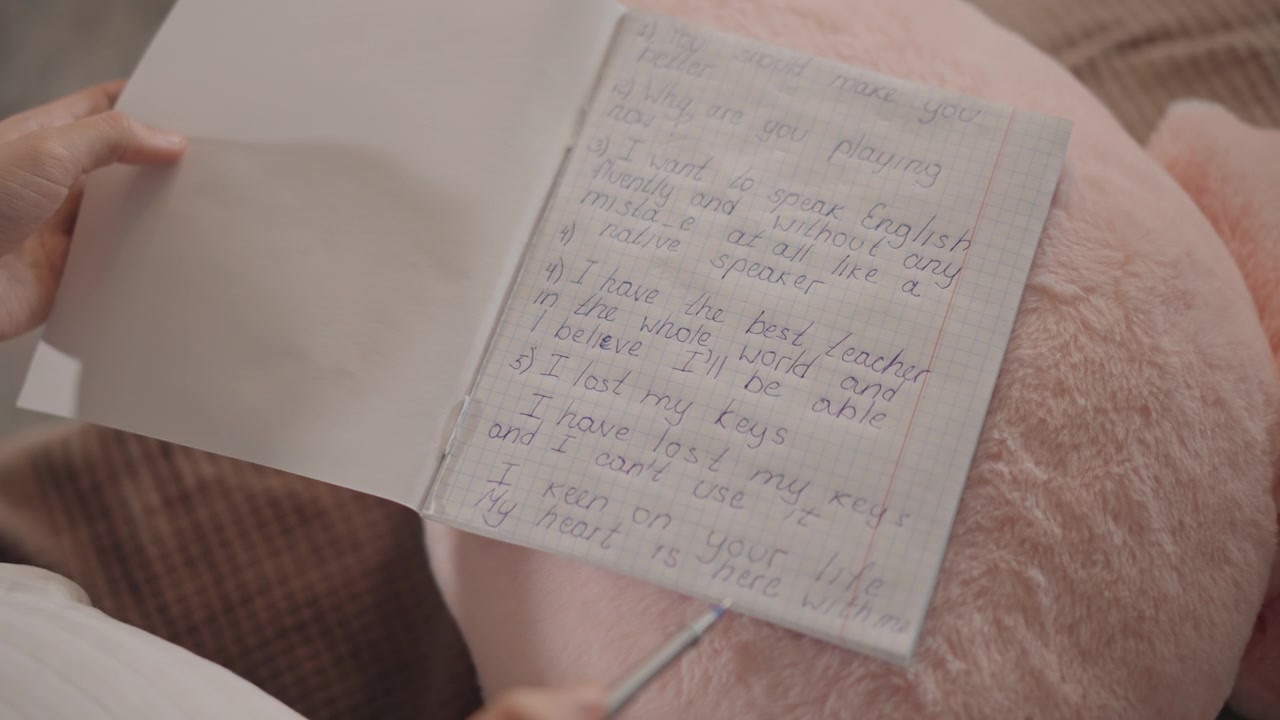 1) You should make you
better
2) Why are you playing
now?
3) I want to speak English
fluently and without any
mista_e at all like a
4) native speaker
4) I have the best teacher
in the whole world and
I believe I'll be able
5) I lost my keys
I have lost my keys
and I can't use it
I keen on your life
My heart is here with me